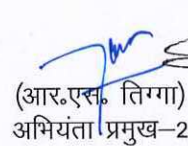 (आर॰एस॰ तिग्गा)
अभियंता प्रमुख–2